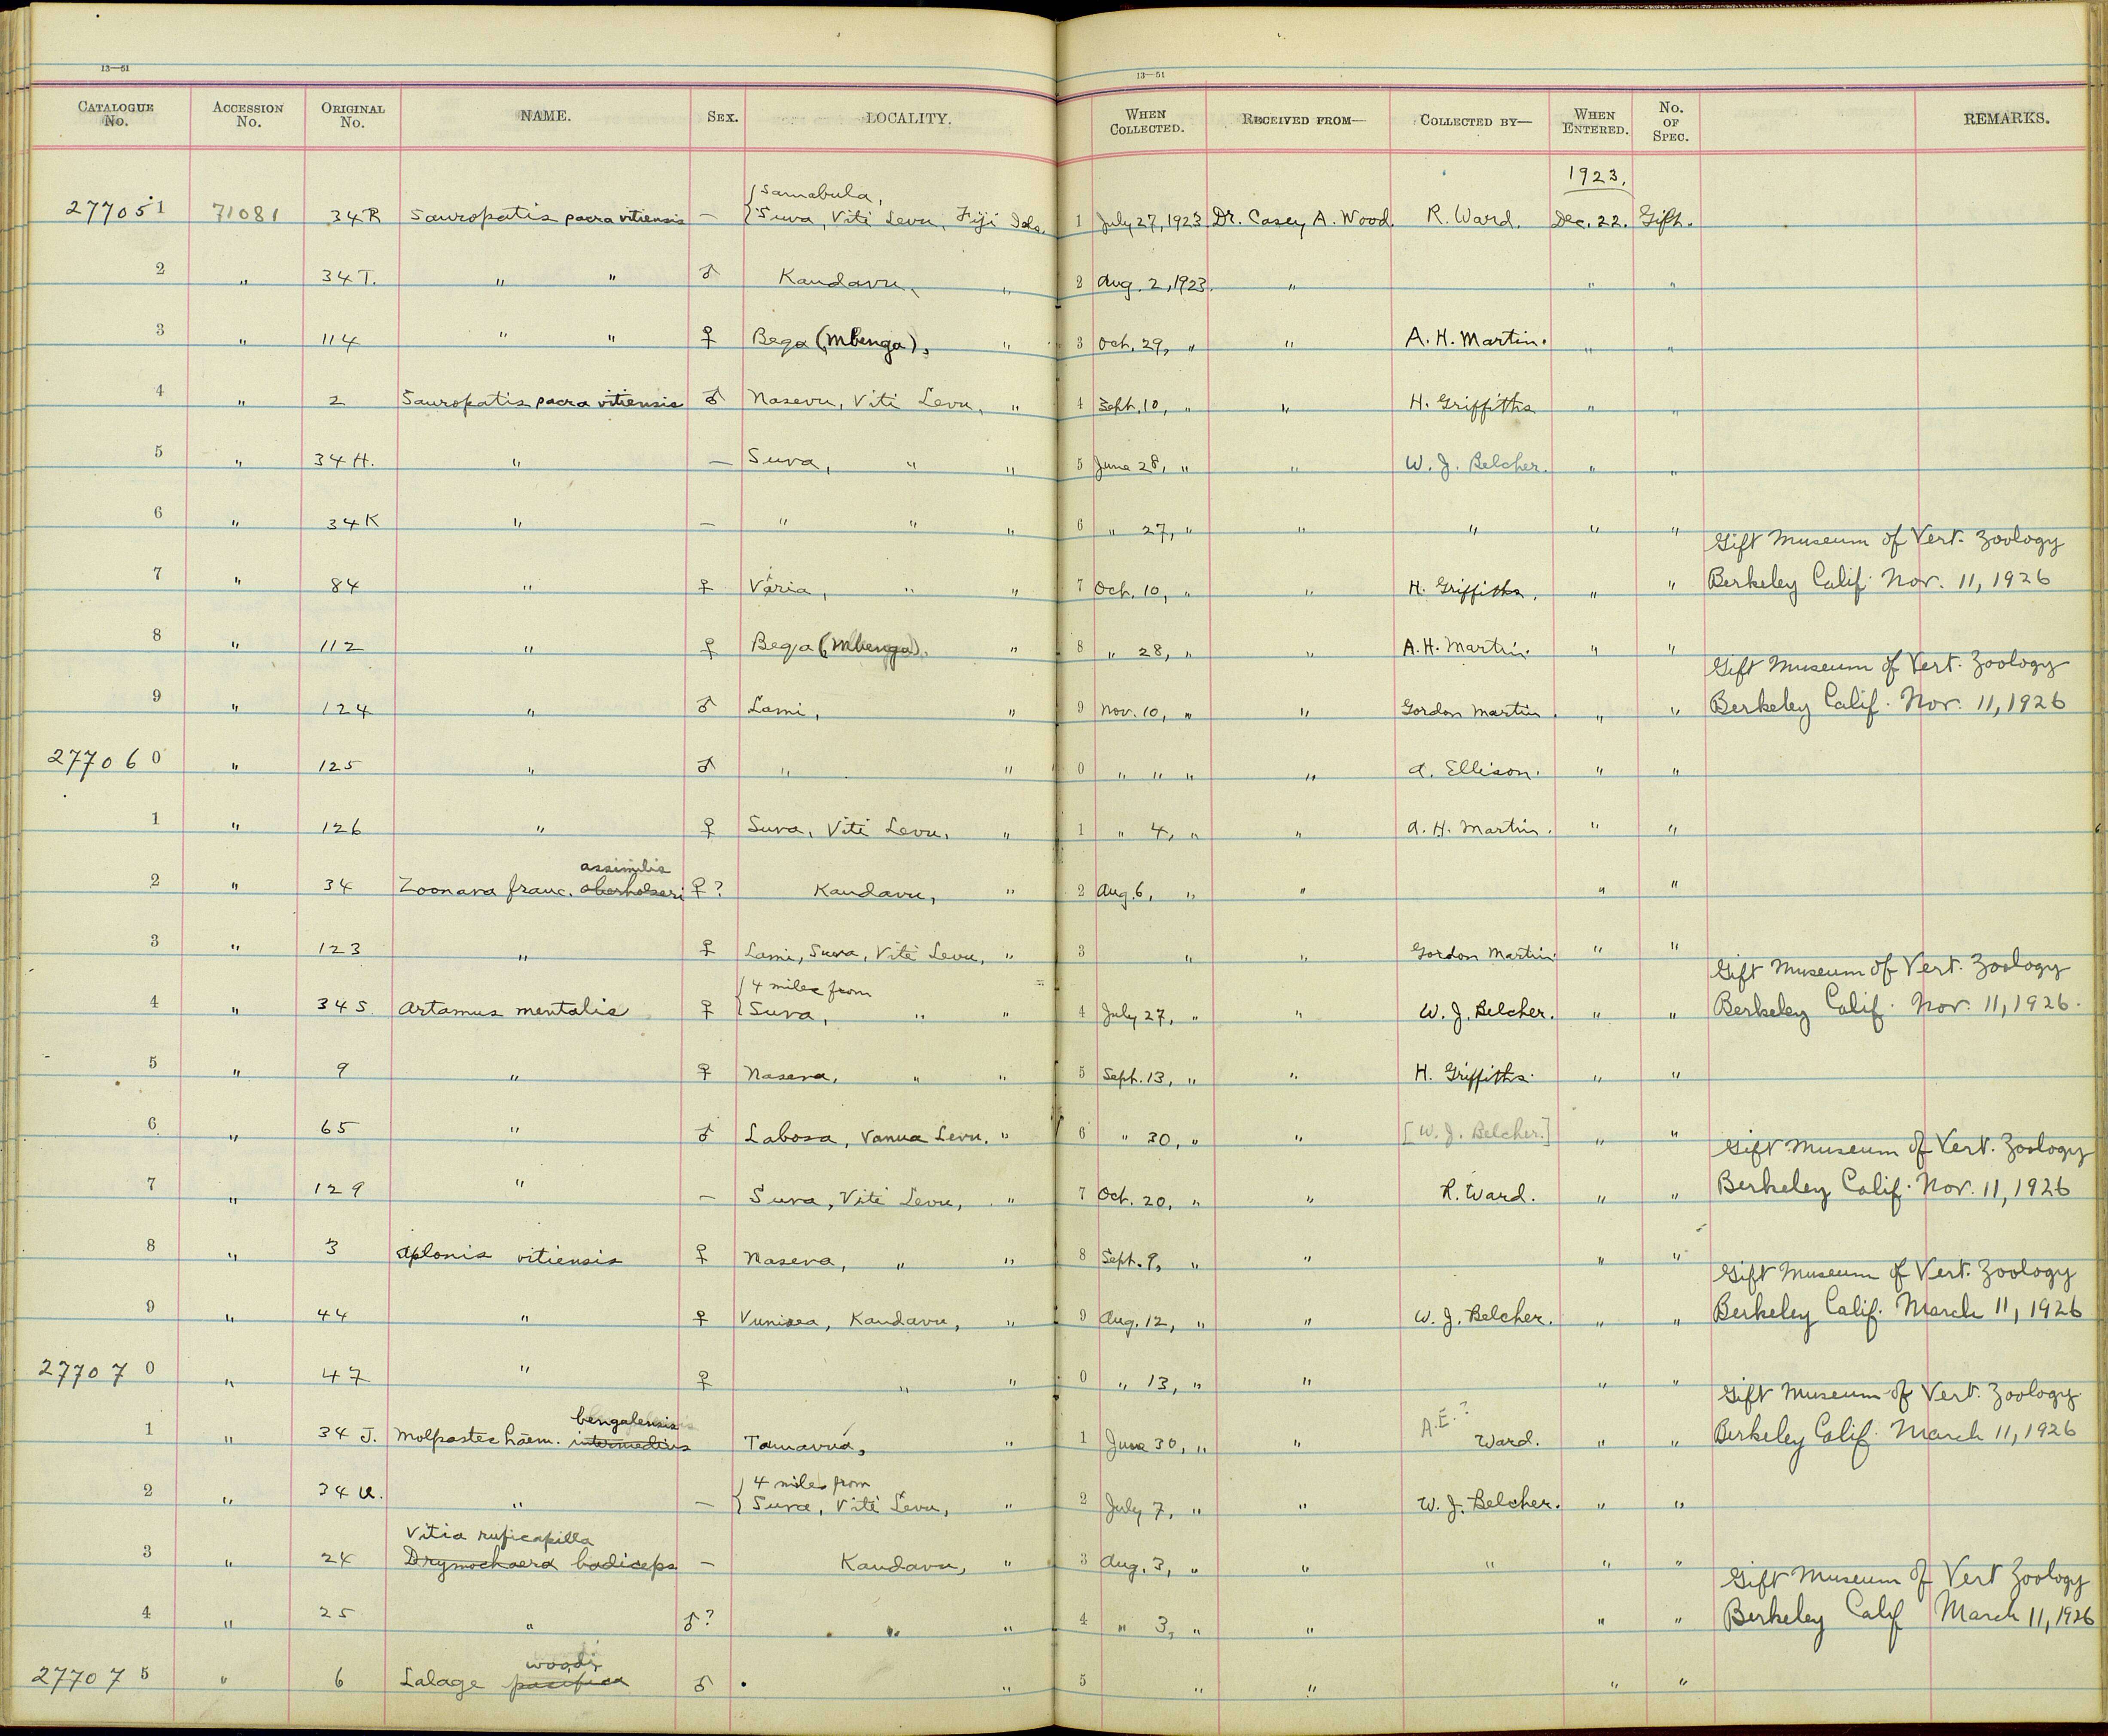 13—51 13—51
CATALOGUE No. ACCESSION No. ORIGINAL No. NAME. SEX. LOCALITY. WHEN COLLECTED. RECEIVED FROM— COLLECTED BY— WHEN ENTERED. No. OF SPEC. REMARKS.
1923.
{Samabula,
277051 71081 34R Sauropatis sacra vitiensis — {Suva, Viti Levu, Fiji Isls. 1 July 27, 1923 Dr. Casey A. Wood. R. Ward. Dec. 22. Gift.
2 " 34T. " " ♂ Kandavu, " 2 Aug. 2, 1923. " " "
3 " 114 " " ♀ Beqa (Mbenga), " 3 Oct. 29, " " A. H. Martin. " "
4 " 2 Sauropatis sacra vitiensis ♂ Nasevu, Viti Levu, " 4 Sept. 10, " " H. Griffiths " "
5 " 34H. " — Suva, " " 5 June 28, " " W. J. Belcher. " "
6 " 34K " — " " " 6 " 27, " " " " "
Gift Museum of Vert. Zoology
7 " 84 " ♀ Varia, " " 7 Oct. 10, " " H. Griffiths. " " Berkeley Calif. Nov. 11, 1926
8 " 112 " ♀ Beqa (Mbenga). " 8 " 28, " " A. H. Martin. " "
Gift Museum of Vert. Zoology
9 " 124 " ♂ Lami, " 9 Nov. 10, " " Gordon Martin. " " Berkeley Calif. Nov. 11, 1926
277060 " 125 " ♂ " " 0 " " " " A. Ellison. " "
1 " 126 " ♀ Suva, Viti Levu, " 1 " 4, " " A. H. Martin. " "
assimilis
2 " 34 Zoonava franc. oberholseri ♀? Kandavu, " 2 Aug. 6, " " " "
3 " 123 " ♀ Lami, Suva, Viti Levu, " 3 " " Gordon Martin " "
{4 miles from Gift Museum of Vert. Zoology
4 " 34S Artamus mentalis ♀ {Suva, " " 4 July 27, " " W. J. Belcher. " " Berkeley Calif. Nov. 11, 1926.
5 " 9 " ♀ Naseva, " " 5 Sept. 13, " " H. Griffiths. " "
6 " 65 " ♂ Labosa, Vanua Levu. " 6 " 30, " " [W. J. Belcher.] " "
Gift Museum of Vert. Zoology
7 " 129 " — Suva, Viti Levu, " 7 Oct. 20, " " R. Ward. " " Berkeley Calif. Nov. 11, 1926
8 " 3 Aplonis vitiensis ♀ Naseva, " " 8 Sept. 9, " " " "
Gift Museum of Vert. Zoology
9 " 44 " ♀ Vunisea, Kandavu, " 9 Aug. 12, " " W. J. Belcher. " " Berkeley Calif. March 11, 1926
277070 " 47 " ♀ " " 0 " 13, " " " "
bengalensis A.E.? Gift Museum of Vert. Zoology
1 " 34 J. Molpastes haem. intermedius Tamavua, " 1 June 30, " " Ward. " " Berkeley Calif. March 11, 1926
{4 miles from
2 " 34 U. " — {Suva, Viti Levu, " 2 July 7, " " W. J. Belcher. " "
Vitia ruficapilla
3 " 24 Drymochaera badiceps — Kandavu, " 3 Aug. 3, " " " " "
Gift Museum of Vert Zoology
4 " 25 " ♂? " " 4 " 3, " " " " Berkeley Calif March 11, 1926
woodi
277075 " 6 Lalage pacifica ♂ " 5 " " " "